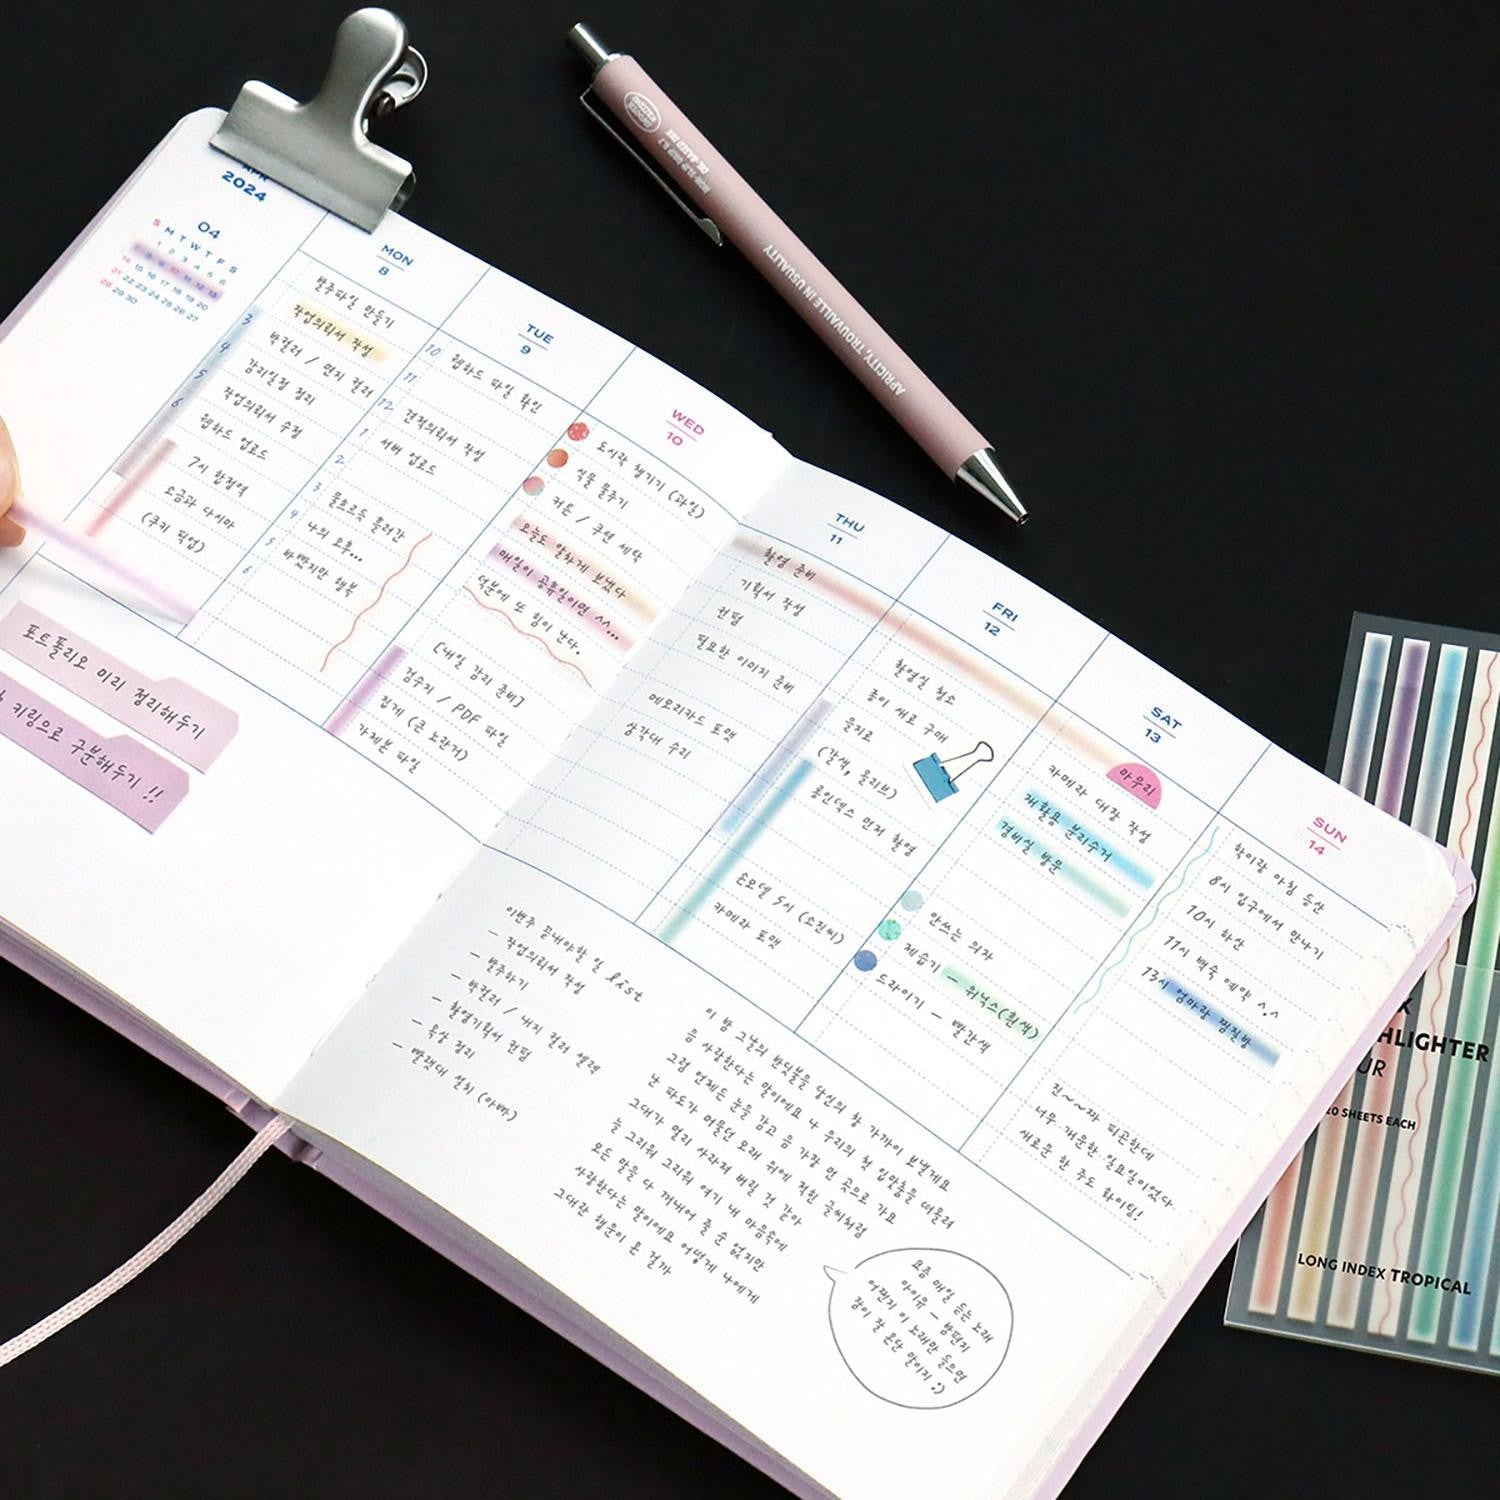 2024
04
S M T W T F S
1 2 3 4 5 6
7 8 9 10 11 12 13
14 15 16 17 18 19 20
21 22 23 24 25 26 27
28 29 30
3
4
5
6
MON
8
발주파일 만들기
작업의뢰서 작성
박컬러 / 면지 컬러
감리일정 정리
작업의뢰서 수정
웹하드 업로드
7시 합정역
소금과 다시마
(쿠키 픽업)
TUE
9
10
11
12
1
2
3
4
5
6
웹하드 파일 확인
견적의뢰서 작성
서버 업로드
물흐르듯 흘러간
나의 오후...
바빴지만 행복
WED
10
도시락 챙기기 (과일)
식물 물주기
커튼 / 쿠션 세탁
오늘도 알차게 보냈다
매일이 공휴일이면 ^^...
덕분에 또 힘이 난다.
[내일 감리 준비]
검수지 / PDF 파일
집게 (큰 노란거)
가제본 파일
포트폴리오 미리 정리해두기
키링으로 구분해두기 !!
THU
11
촬영 준비
기획서 작성
컨펌
필요한 이미지 준비
메모리카드 포맷
삼각대 수리
FRI
12
촬영실 청소
종이 새로 구매
을지로
(갈색, 올리브)
롱인덱스 먼저 촬영
손모델 5시 (소진씨)
카메라 포맷
SAT
13
마무리
카메라 대장 작성
재활용 분리수거
경비실 방문
안쓰는 의자
제습기 - 위닉스(흰색)
드라이기 - 빨간색
SUN
14
학이랑 아침 등산
8시 입구에서 만나기
10시 하산
11시 백숙 예약 ^.^
13시 엄마랑 찜질방
진~~짜 피곤한데
너무 개운한 일요일이었다.
새로운 한 주도 화이팅!
이번주 끝내야할 일 list
- 작업의뢰서 작성
- 발주하기
- 박컬러 / 내지 컬러 셀렉
- 촬영기획서 컨펌
- 옥상 정리
- 빨랫대 설치 (아빠)
이 밤 그날의 반딧불을 당신의 창 가까이 보낼게요
음 사랑한다는 말이에요 나 우리의 첫 입맞춤을 떠올려
그럼 언제든 눈을 감고 음 가장 먼 곳으로 가요
난 파도가 머물던 모래 위에 적힌 글씨처럼
그대가 멀리 사라져 버릴 것 같아
늘 그리워 그리워 여기 내 마음속에
모든 말을 다 꺼내어 줄 순 없지만
사랑한다는 말이에요 어떻게 나에게
그대란 행운이 온 걸까
요즘 매일 듣는 노래
아이유 - 밤편지
어쩐지 이 노래만 들으면
잠이 잘 온단 말이지 :)
NON-SLIP GRIP 0.7
OIL-BASED INK
APRICITY, TROUVAILLE IN USUALITY
HLIGHTER
20 SHEETS EACH
LONG INDEX TROPICAL